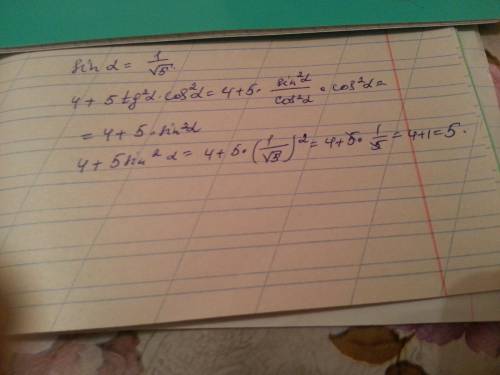 sin α = 1/√5.
4 + 5 tg²α · cos²α = 4 + 5 · sin²α/cos²α · cos²α =
= 4 + 5 · sin²α
4 + 5 sin² α = 4 + 5 · (1/√5)² = 4 + 5 · 1/5 = 4 + 1 = 5.